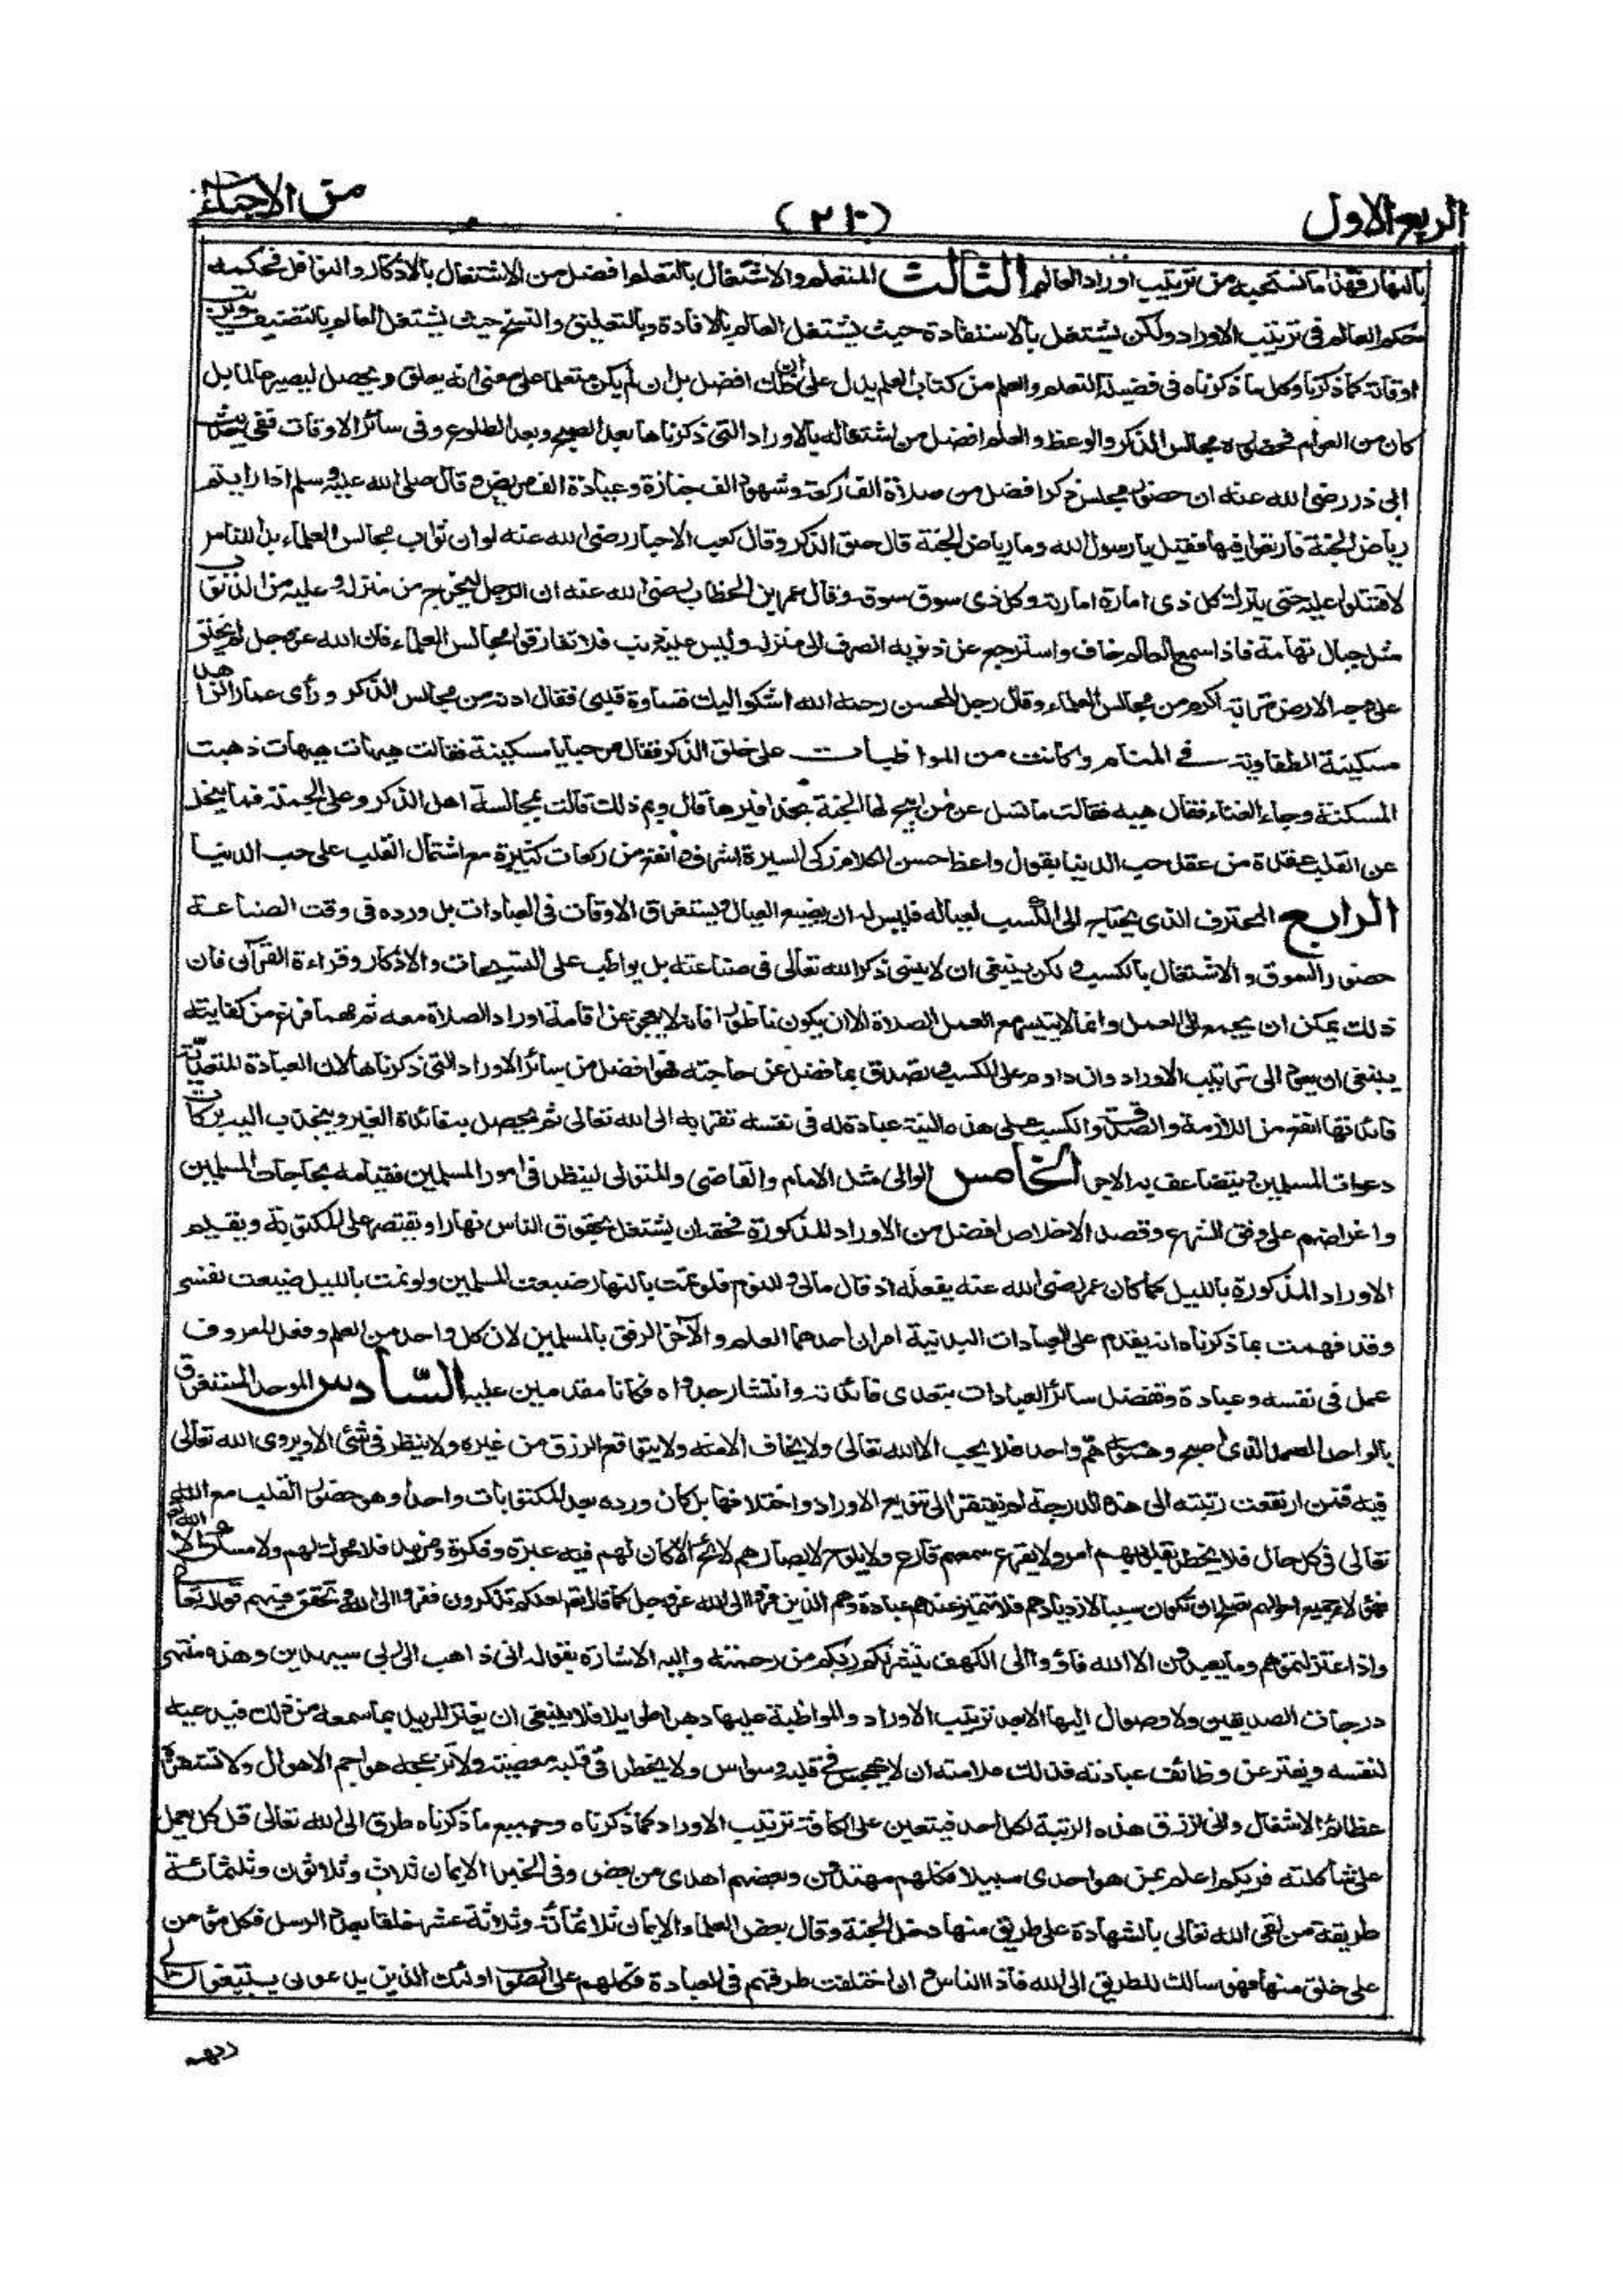 الربع الاول
(٢١٠)
من الاحياء
بالنهار فهذا ما نستحبه من ترتيب اوراد العالم الثالث المتعلم والاشتغال بالتعلم افضل من الاشتغال بالاذكار والنوافل فحكمه
حكم العالم فى ترتيب الاوراد ولكن يشتغل بالاستفادة حيث يشتغل العالم بالافادة وبالتعليق والنسخ حيث يشتغل العالم بالتصنيف ويرتب
اوقاته كما ذكرنا وكل ما ذكرناه فى فضيلة التعلم والعلم من كتاب العلم يدل على ان ذلك افضل بل ان لم يكن متعلما على معنى انه يعلق ويحصل ليصير عالما بل
كان من العوام فحضوره مجالس الذكر والوعظ والعلم افضل من اشتغاله بالاوراد التى ذكرناها بعد الصبح وبعد الطلوع وفى سائر الاوقات ففى حديث
ابى ذر رضى الله عنه ان حضور مجلس ذكر افضل من صلاة الف ركعة وشهود الف جنازة وعيادة الف مريض وقال صلى الله عليه وسلم اذا رايتم
رياض الجنة فارتعوا فيها فقيل يا رسول الله وما رياض الجنة قال حلق الذكر وقال كعب الاحبار رضى الله عنه لو ان ثواب مجالس العلماء بدا للناس
لاقتتلوا عليه حتى يترك كل ذى امارة امارته وكل ذى سوق سوقه وقال عمر ابن الخطاب رضى الله عنه ان الرجل ليخرج من منزله وعليه من الذنوب
مثل جبال تهامة فاذا سمع العالم خاف واسترجع عن ذنوبه انصرف الى منزله وليس عليه ذنب فلا تفارقوا مجالس العلماء فان الله عز وجل لم يخلق
على وجه الارض تربة اكرم من مجالس العلماء وقال رجل للحسن رحمه الله اشكو اليك قساوة قلبى فقال ادنه من مجالس الذكر ورأى عمار الزاهد
مسكينة الطفاوية فى المنام وكانت من المواظبات على حلق الذكر فقال مرحبا يا مسكينة فقالت هيهات هيهات ذهبت
المسكنة وجاء الغناء فقال هيه فقالت ما تسل عن من ابيح لها الجنة بحذافيرها قال وبم ذلك قالت بمجالسة اهل الذكر وعلى الجملة فما ينحل
عن القلب عقدة من عقد حب الدنيا بقول واعظ حسن الكلام زكى السيرة اشرف وانفع من ركعات كثيرة مع اشتمال القلب على حب الدنيا
الرابع المحترف الذى يحتاج الى الكسب لعياله فليس له ان يضيع العيال ويستغرق الاوقات فى العبادات بل ورده فى وقت الصناعة
حضور السوق والاشتغال بالكسب ولكن ينبغى ان لا ينسى ذكر الله تعالى فى صناعته بل يواظب على التسبيحات والاذكار وقراءة القرآن فان
ذلك يمكن ان يجمع الى العمل وانما لا يتيسر مع العمل الصلاة الا ان يكون ناطورا فانه لا يعجز عن اقامة اوراد الصلاة معه ثم مهما فرغ من كفايته
ينبغى ان يعود الى ترتيب الاوراد وان داوم على الكسب وتصدق بما فضل عن حاجته فهو افضل من سائر الاوراد التى ذكرناها لان العبادة المتعدية
فائدتها انفع من اللازمة والصدقة والكسب على هذه النية عبادة له فى نفسه تقربه الى الله تعالى ثم يحصل به فائدة الغير وينجذب اليه بركات
دعوات المسلمين ويتضاعف به الاجر الخامس الوالى مثل الامام والقاضى والمتولى لينظر فى امور المسلمين فقيامه بحاجات المسلمين
واغراضهم على وفق الشرع وقصد الاخلاص افضل من الاوراد المذكورة فحقه ان يشتغل بحقوق الناس نهارا ويقتصر على المكتوبة ويقيم
الاوراد المذكورة بالليل كما كان عمر رضى الله عنه يفعله اذ قال مالى وللنوم فلو نمت بالنهار ضيعت المسلمين ولو نمت بالليل ضيعت نفسى
وقد فهمت بما ذكرناه انه يقدم على العبادات البدنية امران احدهما العلم والآخر الرفق بالمسلمين لان كل واحد من العلم وفعل المعروف
عمل فى نفسه وعبادة وتفضل سائر العبادات بتعدى فائدته وانتشار جدواه فكانا مقدمين عليه السادس الموحد المستغرق
بالواحد الصمد الذى اصبح وهمومه هم واحد فلا يحب الا الله تعالى ولا يخاف الا منه ولا يتوقع الرزق من غيره ولا ينظر فى شئ الا ويرى الله تعالى
فيه فمن ارتفعت رتبته الى هذه الدرجة لم يفتقر الى تنويع الاوراد واختلافها بل كان ورده بعد المكتوبات واحدا وهو حضور القلب مع الله
تعالى فى كل حال فلا يخطر بقلوبهم امر ولا يقرع سمعهم قارع ولا يلوح لابصارهم لائح الا كان لهم فيه عبرة وفكرة ومزيد فلا محرك لهم ولا مسكن الا
فهؤلاء جميع احوالهم تصلح ان تكون سببا لازديادهم فلا تتميز عندهم عبادة وهم الذين فروا الى الله عز وجل كما قال تعالى لعلكم تذكرون ففروا الى الله وتحقق فيهم قوله تعالى
واذا عتزلتموهم وما يعبدون الا الله فأووا الى الكهف ينشر لكم ربكم من رحمته واليه الاشارة بقوله انى ذاهب الى ربى سيهدين وهذه منتهى
درجات الصديقين ولا وصول اليها الا بعد ترتيب الاوراد والمواظبة عليها دهرا طويلا فلا ينبغى ان يغتر المريد بما سمعه من ذلك فيدعيه
لنفسه ويفتر عن وظائف عبادته فذلك علامته ان لا يهجس فى قلبه وسواس ولا يخطر فى قلبه معصية ولا تزعجه هواجم الاهوال ولا تستهزه
عظائم الاشغال وانى ترزق هذه الرتبة لكل احد فيتعين على الكافة ترتيب الاوراد كما ذكرناه وجميع ما ذكرناه طرق الى الله تعالى قل كل يعمل
على شاكلته فربكم اعلم بمن هو اهدى سبيلا فكلهم مهتدون وبعضهم اهدى من بعض وفى الخبر الايمان ثلاث وثلاثون وثلثمائة
طريقة من لقى الله تعالى بالشهادة على طريق منها دخل الجنة وقال بعض العلماء الايمان ثلاثمائة وثلاثة عشر خلقا بعدد الرسل فكل مؤمن
على خلق منها فهو سالك للطريق الى الله فاذا الناس وان اختلفت طرقهم فى العبادة فكلهم على الصواب اولئك الذين يدعون يبتغون الى
ربهم